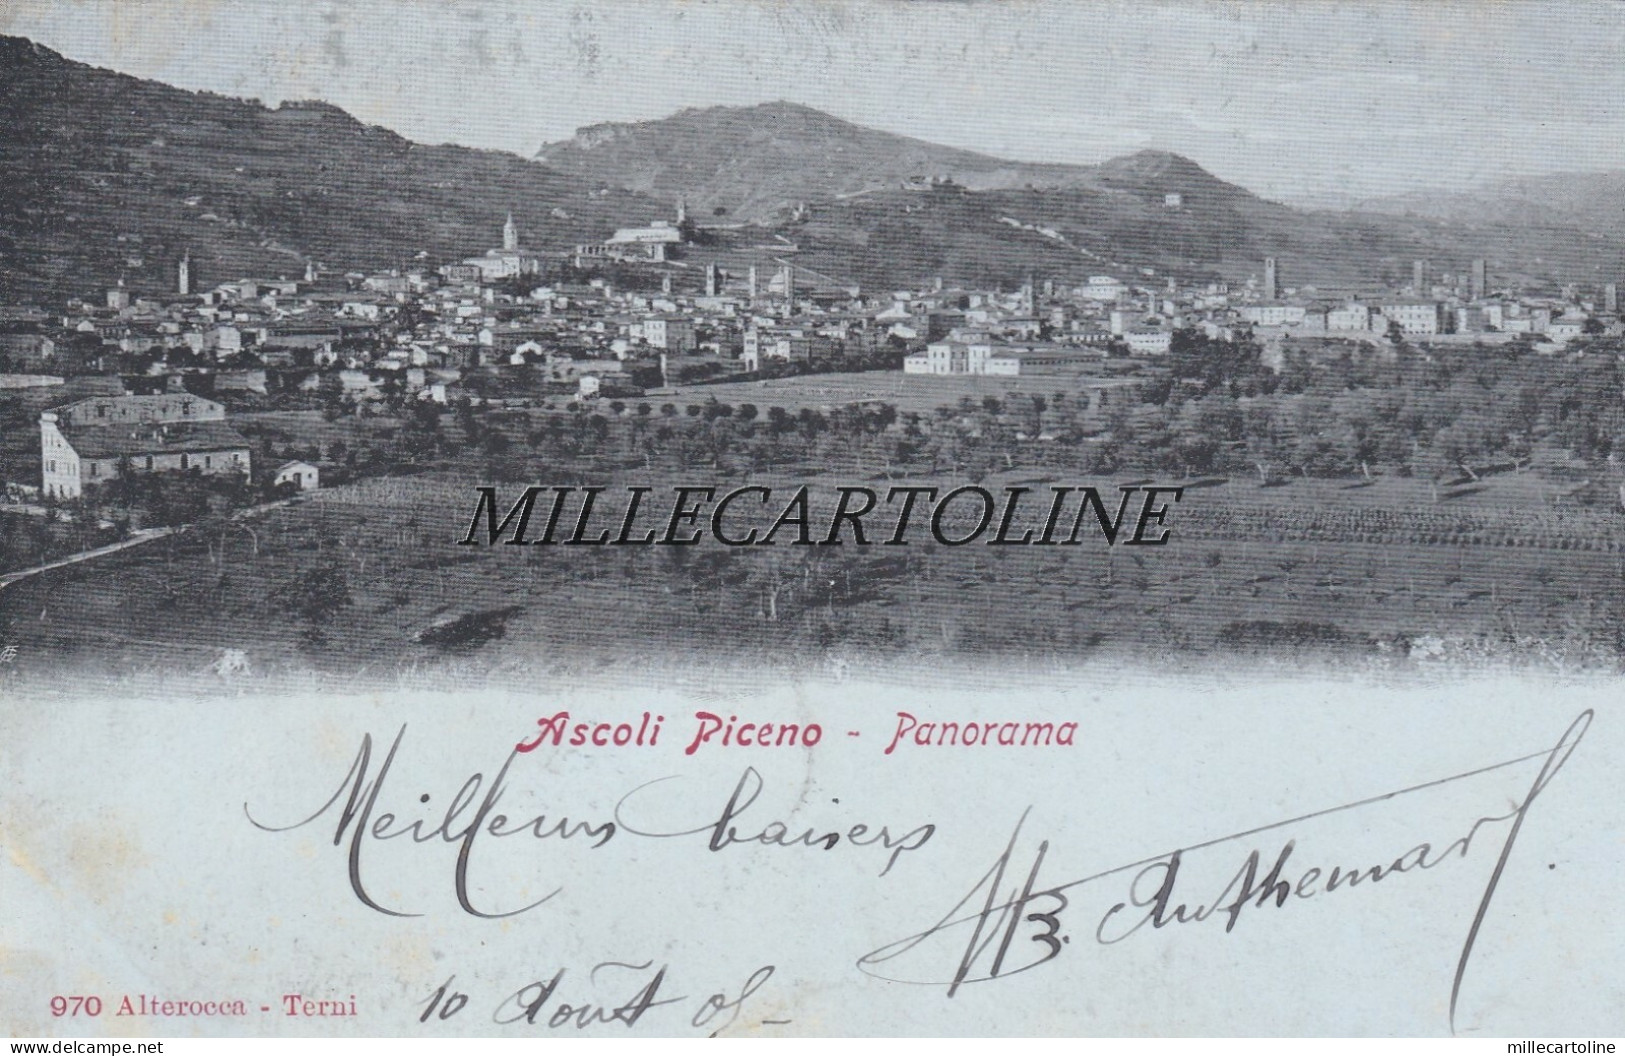 MILLECARTOLINE
Ascoli Piceno - Panorama
Meilleurs baisers
Authemard.
970 Alterocca - Terni
10 Août 05
delcampe.net
millecartoline